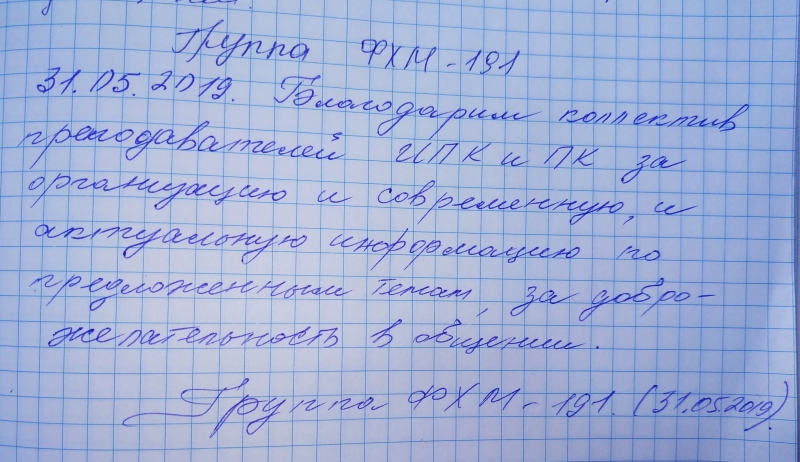 Группа ФХМ-191
31.05.2019. Благодарим коллектив
преподавателей ИПК и ПК за
организацию и современную, и
актуальную информацию по
предложенным темам, за добро-
желательность в общении.
Группа ФХМ-191. (31.05.2019)